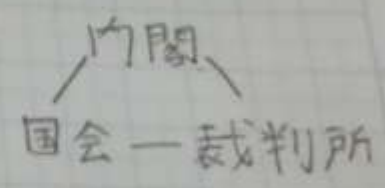 内閣
国会 — 裁判所